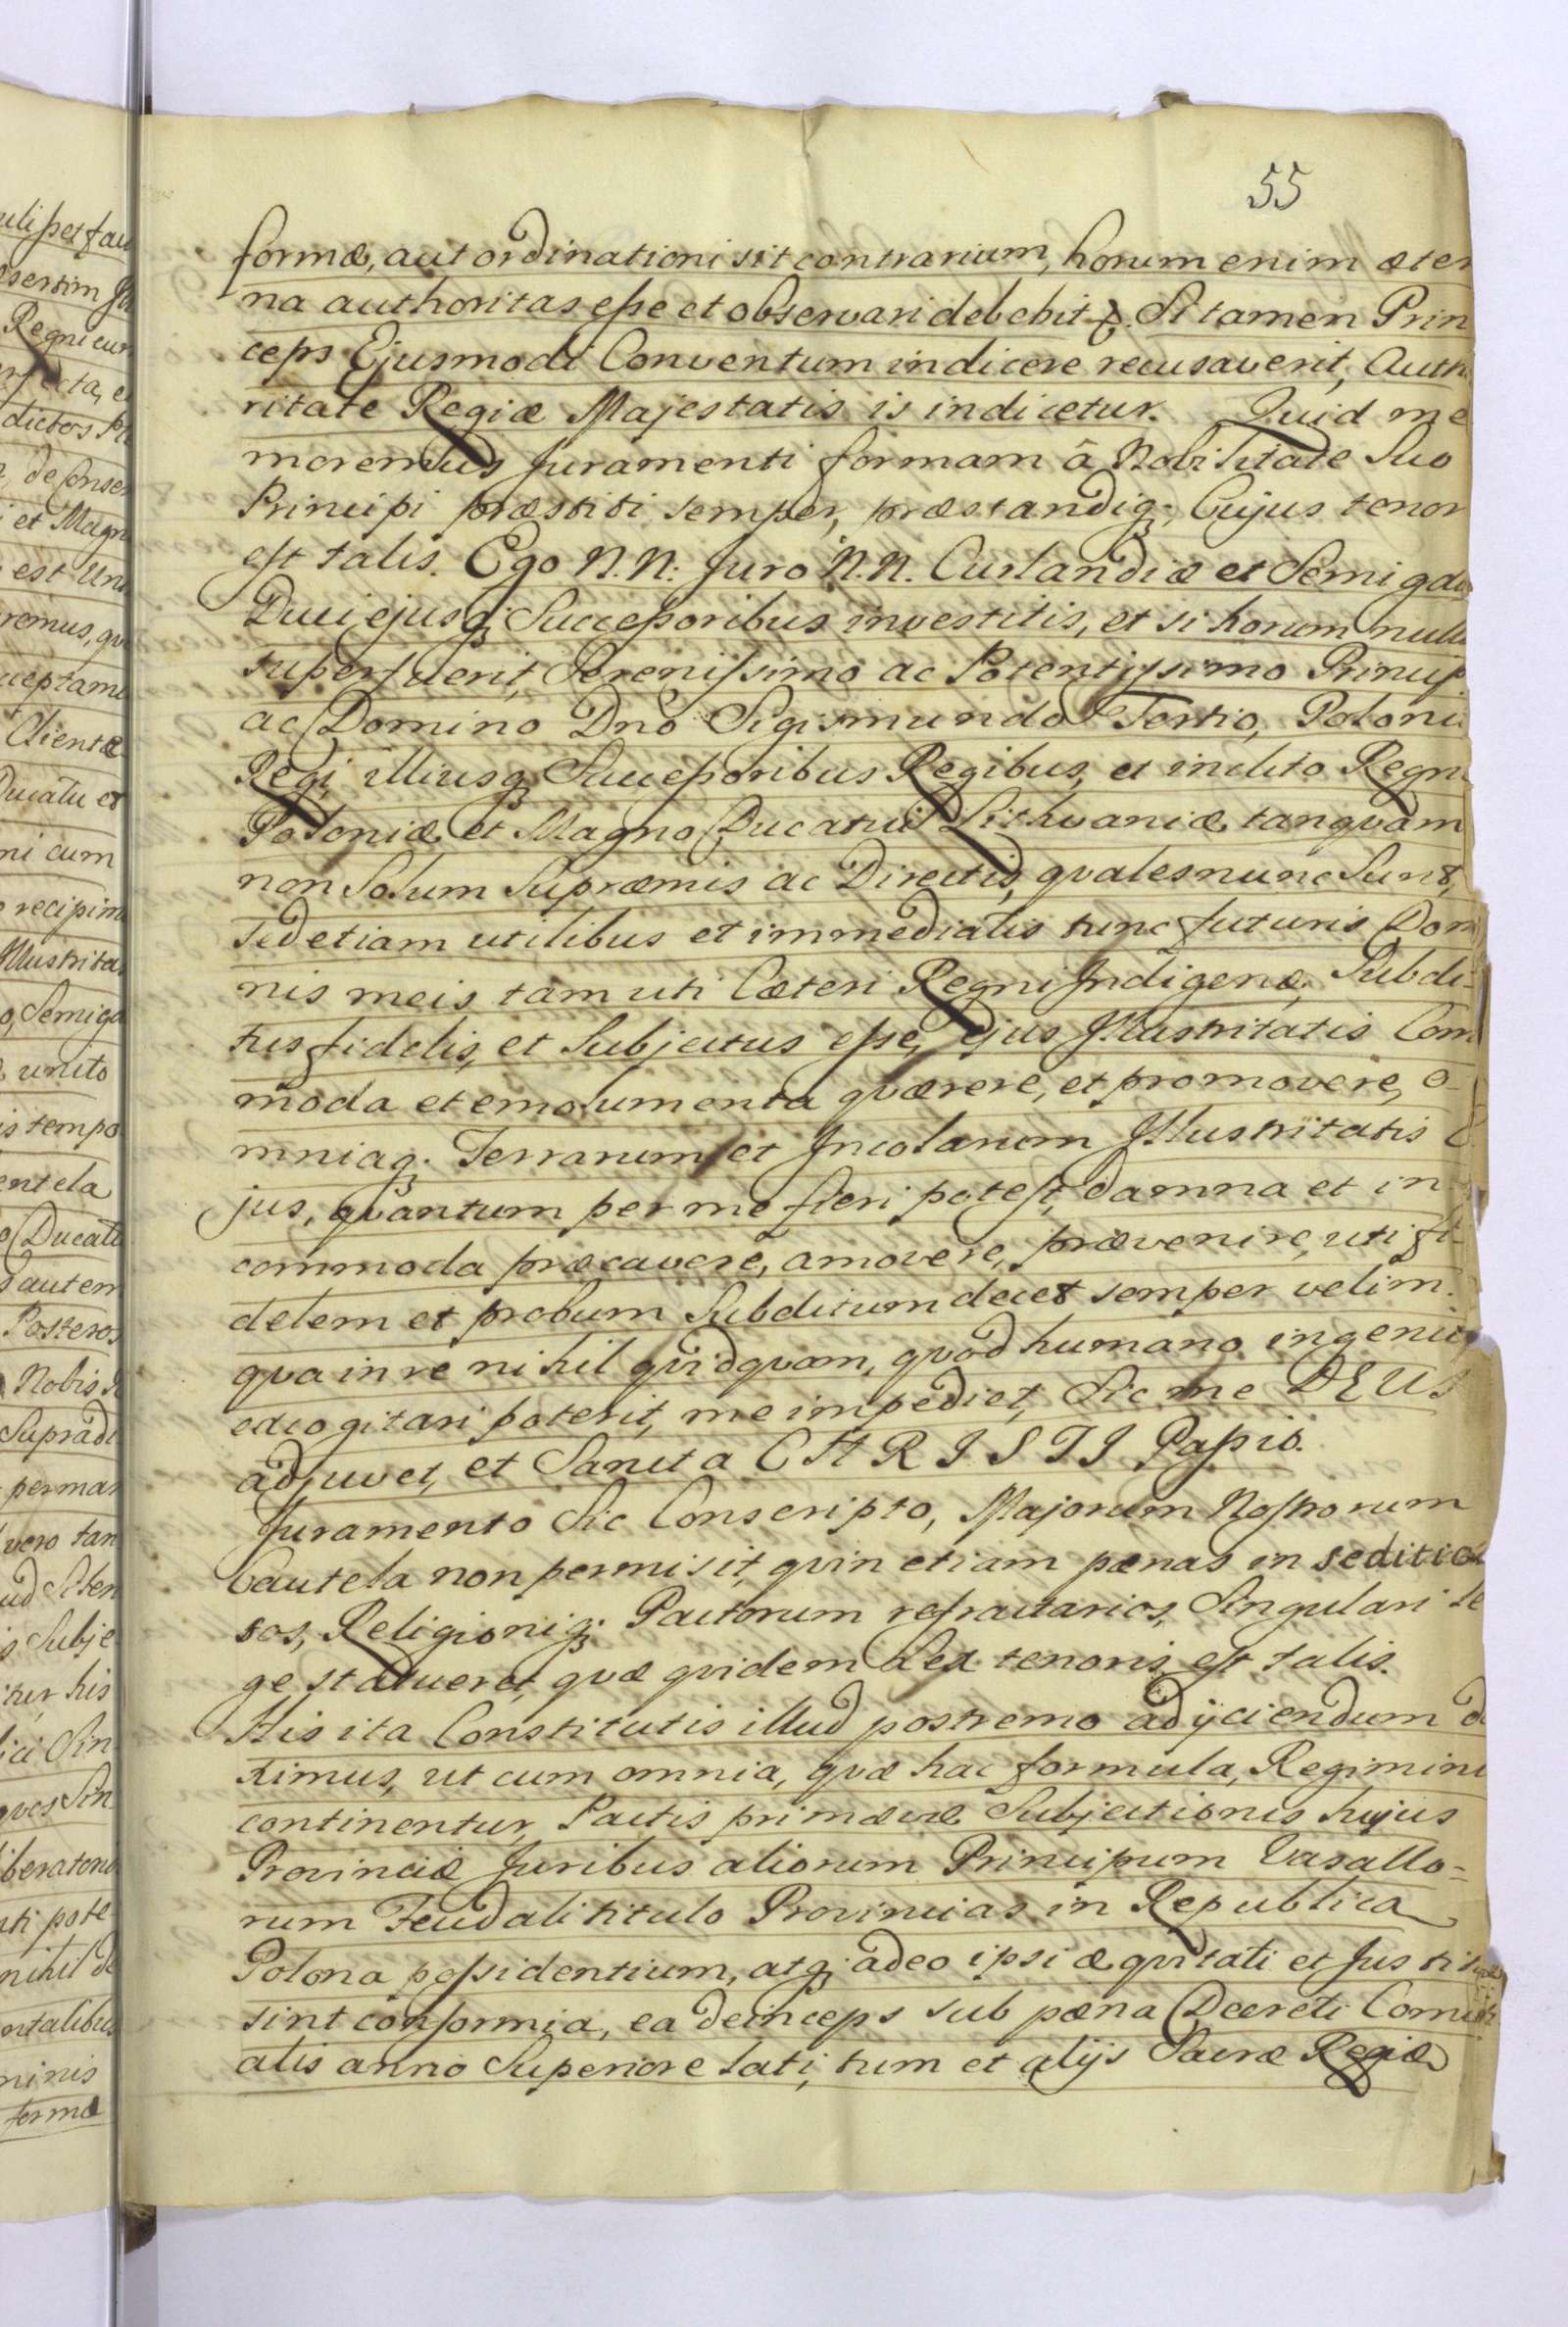 55
formæ, aut ordinationi sit contrarium, horum enim æter
na authoritas esse et observari debebit &. Si tamen Prin
ceps Ejusmodi Conventum indicere recusaverit, Autho
ritate Regiæ Majestatis is indicetur. Quid me
moremus Juramenti formam â Nobilitate Suo
Principi præstiti semper, præstandiq; Cujus tenor
est talis. Ego N.N. Juro N.N. Curlandiæ et Semigal
Duci ejusq; Successoribus investitis, et si horum nullu
superfuerit, Serenissimo ac Potentissimo Princip
ac Domino Dnō Sigismundo Tertio, Poloni
Regi illiusq; Successoribus Regibus, et inclito Regn
Poloniæ et Magno Ducatui Lithvaniæ tanqvam
non Solum Supræmis ac Directis, qvales nunc Sunt,
sed etiam utilibus et immediatis tunc futuris Domi
nis meis tam uti Cæteri Regni Indigenæ, Subdi-
tus fidelis, et Subjectus esse, ejus Illustritatis Com
moda et emolumenta qværere, et promovere, o-
mniaq; Terrarum et Incolarum Illustritatis E
jus, qvantum per me fieri potest, damna et in-
commoda præcavere, amovere, prævenire, uti fi-
delem et probum Subditum decet semper velim.
qva in re nihil qvidqvam, qvod humano ingenio
excogitari poterit, me impediet, Sic me DEUS
adjuvet, et Sancta CHRISTI Passio.
Juramento Sic Conscripto, Majorum Nostrorum
Cautela non permisit, qvin etiam pænas in seditio
sos, Religioniq; Pactorum refractarios, Singulari le
ge statueret, qvæ qvidem Lex tenoris est talis.
His ita Constitutis illud postremo adijciendum du
ximus, ut cum omnia, qvæ hac formula, Regimini
continentur, Pactis primævæ Subjectionis hujus
Provinciæ Juribus aliorum Principum Vasallo-
rum Feudali titulo Provincias in Republica
Polona possidentium, atq; adeo ipsi æqvitati et Justiti
sint conformia, ea deinceps sub pæna Decreti Comiti
alis anno Superiore lati, tum et alijs Sacræ Regiæ